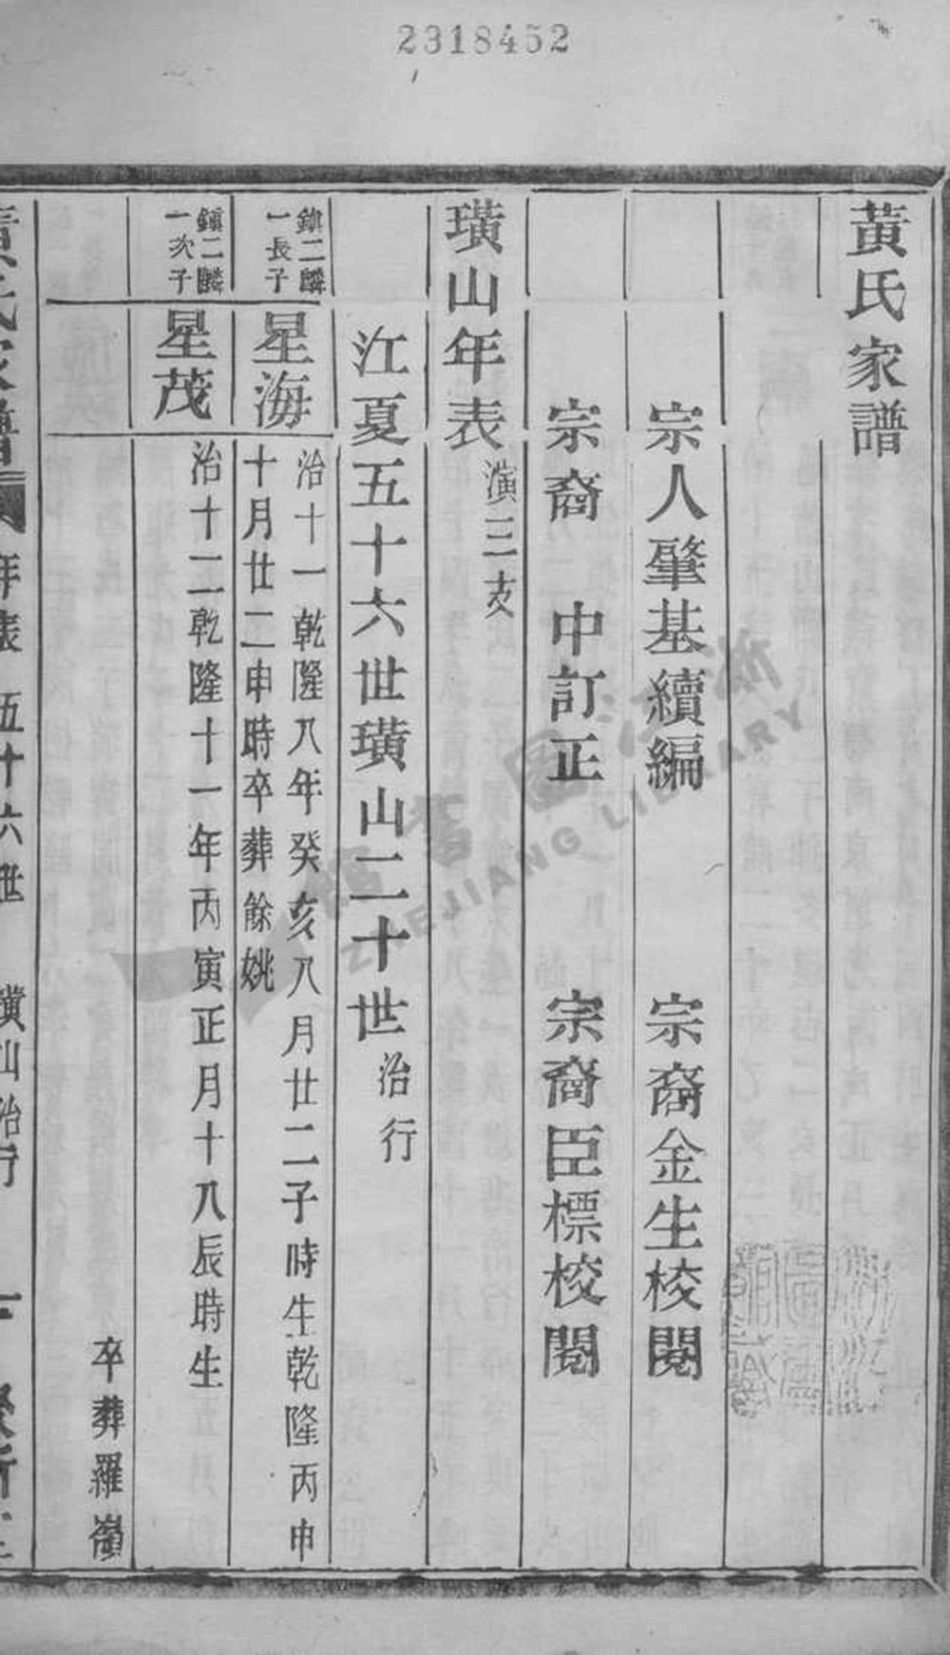 2318452
黃氏家譜
宗人肇基續編　宗裔金生校閱
宗裔　中訂正　宗裔臣標校閱
璜山年表 演三支
江夏五十六世璜山二十世 治行
鎮二麟
一長子
星海
治十一乾隆八年癸亥八月廿二子時生乾隆丙申
十月廿二申時卒葬餘姚
鎮二麟
一次子
星茂
治十二乾隆十一年丙寅正月十八辰時生
卒葬羅嶺
黃氏家譜 年表 五十六世 璜山治行
浙江圖書館
ZHEJIANG LIBRARY